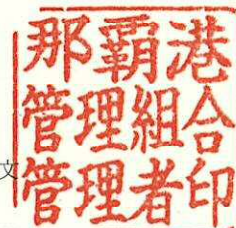 那覇港
管理組合
文
管理者印